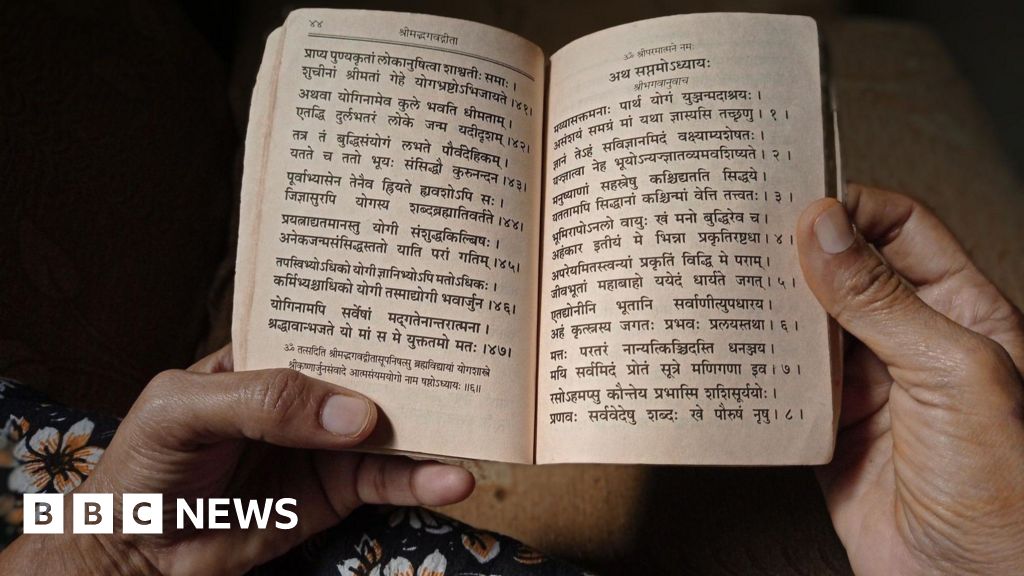 ४४
श्रीमद्भगवद्गीता
प्राप्य पुण्यकृतां लोकानुषित्वा शाश्वतीः समाः ।
शुचीनां श्रीमतां गेहे योगभ्रष्टोऽभिजायते ।४१।
अथवा योगिनामेव कुले भवति धीमताम् ।
एतद्धि दुर्लभतरं लोके जन्म यदीदृशम् ।४२।
तत्र तं बुद्धिसंयोगं लभते पौर्वदेहिकम् ।
यतते च ततो भूयः संसिद्धौ कुरुनन्दन ।४३।
पूर्वाभ्यासेन तेनैव ह्रियते ह्यवशोऽपि सः ।
जिज्ञासुरपि योगस्य शब्दब्रह्मातिवर्तते ।४४।
प्रयत्नाद्यतमानस्तु योगी संशुद्धकिल्बिषः ।
अनेकजन्मसंसिद्धस्ततो याति परां गतिम् ।४५।
तपस्विभ्योऽधिको योगी ज्ञानिभ्योऽपि मतोऽधिकः ।
कर्मिभ्यश्चाधिको योगी तस्माद्योगी भवार्जुन ।४६।
योगिनामपि सर्वेषां मद्गतेनान्तरात्मना ।
श्रद्धावान्भजते यो मां स मे युक्ततमो मतः ।४७।
ॐ तत्सदिति श्रीमद्भगवद्गीतासूपनिषत्सु ब्रह्मविद्यायां योगशास्त्रे
श्रीकृष्णार्जुनसंवादे आत्मसंयमयोगो नाम षष्ठोऽध्यायः ॥६॥
ॐ श्रीपरमात्मने नमः
अथ सप्तमोऽध्यायः
श्रीभगवानुवाच
मय्यासक्तमनाः पार्थ योगं युञ्जन्मदाश्रयः ।
असंशयं समग्रं मां यथा ज्ञास्यसि तच्छृणु । १ ।
ज्ञानं तेऽहं सविज्ञानमिदं वक्ष्याम्यशेषतः ।
यज्ज्ञात्वा नेह भूयोऽन्यज्ज्ञातव्यमवशिष्यते । २ ।
मनुष्याणां सहस्रेषु कश्चिद्यतति सिद्धये ।
यततामपि सिद्धानां कश्चिन्मां वेत्ति तत्त्वतः । ३ ।
भूमिरापोऽनलो वायुः खं मनो बुद्धिरेव च ।
अहंकार इतीयं मे भिन्ना प्रकृतिरष्टधा । ४ ।
अपरेयमितस्त्वन्यां प्रकृतिं विद्धि मे पराम् ।
जीवभूतां महाबाहो ययेदं धार्यते जगत् । ५ ।
एतद्योनीनि भूतानि सर्वाणीत्युपधारय ।
अहं कृत्स्नस्य जगतः प्रभवः प्रलयस्तथा । ६ ।
मत्तः परतरं नान्यत्किञ्चिदस्ति धनञ्जय ।
मयि सर्वमिदं प्रोतं सूत्रे मणिगणा इव । ७ ।
रसोऽहमप्सु कौन्तेय प्रभास्मि शशिसूर्ययोः ।
प्रणवः सर्ववेदेषु शब्दः खे पौरुषं नृषु । ८ ।
BBC NEWS